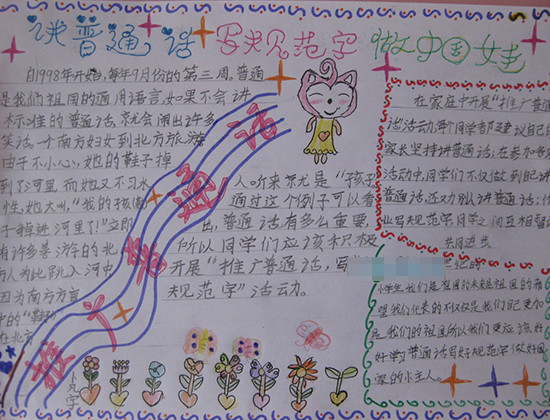 讲普通话 写规范字 做中国娃
自1998年开始,每年9月份的第三周。普通
是我们祖国的通用语言,如果不会讲
标准的普通话,就会闹出许多
笑话。一个南方妇女到北方旅游
由于不小心,她的鞋子掉
到了河里,而她又不习水
性,她大叫,“我的孩
子掉进河里了!”立即
有许多善游的北
方人为此跳入河中
因为南方方言
中的“鞋
在北方
人听来就是“孩子
通过这个例子可以看
出,普通话有多么重要,
所以同学们应该积极
开展“推广普通话,写
规范字”活动。
推广普通话
在家庭中开展“推广普通
话”活动,每个同学都建议自己
家长坚持讲普通话;在参加各
活动中,同学们不仅做到自己讲
普通话,还要劝别人讲普通话;作
业写规范字,同学之间互相督
共同进步。
小学生,我们是祖国的未来,是祖国的希
望,我们代表的不仅仅是我们自己,更加
是我们的祖国,所以我们更应该好
好学习普通话,写好规范字,做好国
家的小主人。